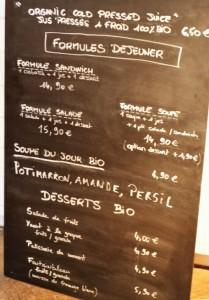 "ORGANIC COLD PRESSED JUICE"
JUS "PRESSÉS A FROID 100% BIO 6,50 €
FORMULES DEJEUNER
FORMULE SANDWICH
1 sandwich + 1 jus + 1 dessert
14,90 €
FORMULE SALADE
1 salade + 1 jus + 1 dessert
15,90 €
FORMULE SOUPE
1 soupe + 1 jus
+ 1 salade / sandwich
14,90 €
(option dessert + 1,90€)
SOUPE DU JOUR BIO 6,90 €
POTIMARRON, AMANDE, PERSIL
DESSERTS BIO
Salade de fruits
4,00 €
Yaourt à la grecque
fruits / granola
4,90 €
Patisserie du moment
4,90 €
fruits/granola
(maison de fromage blanc)
5,90 €